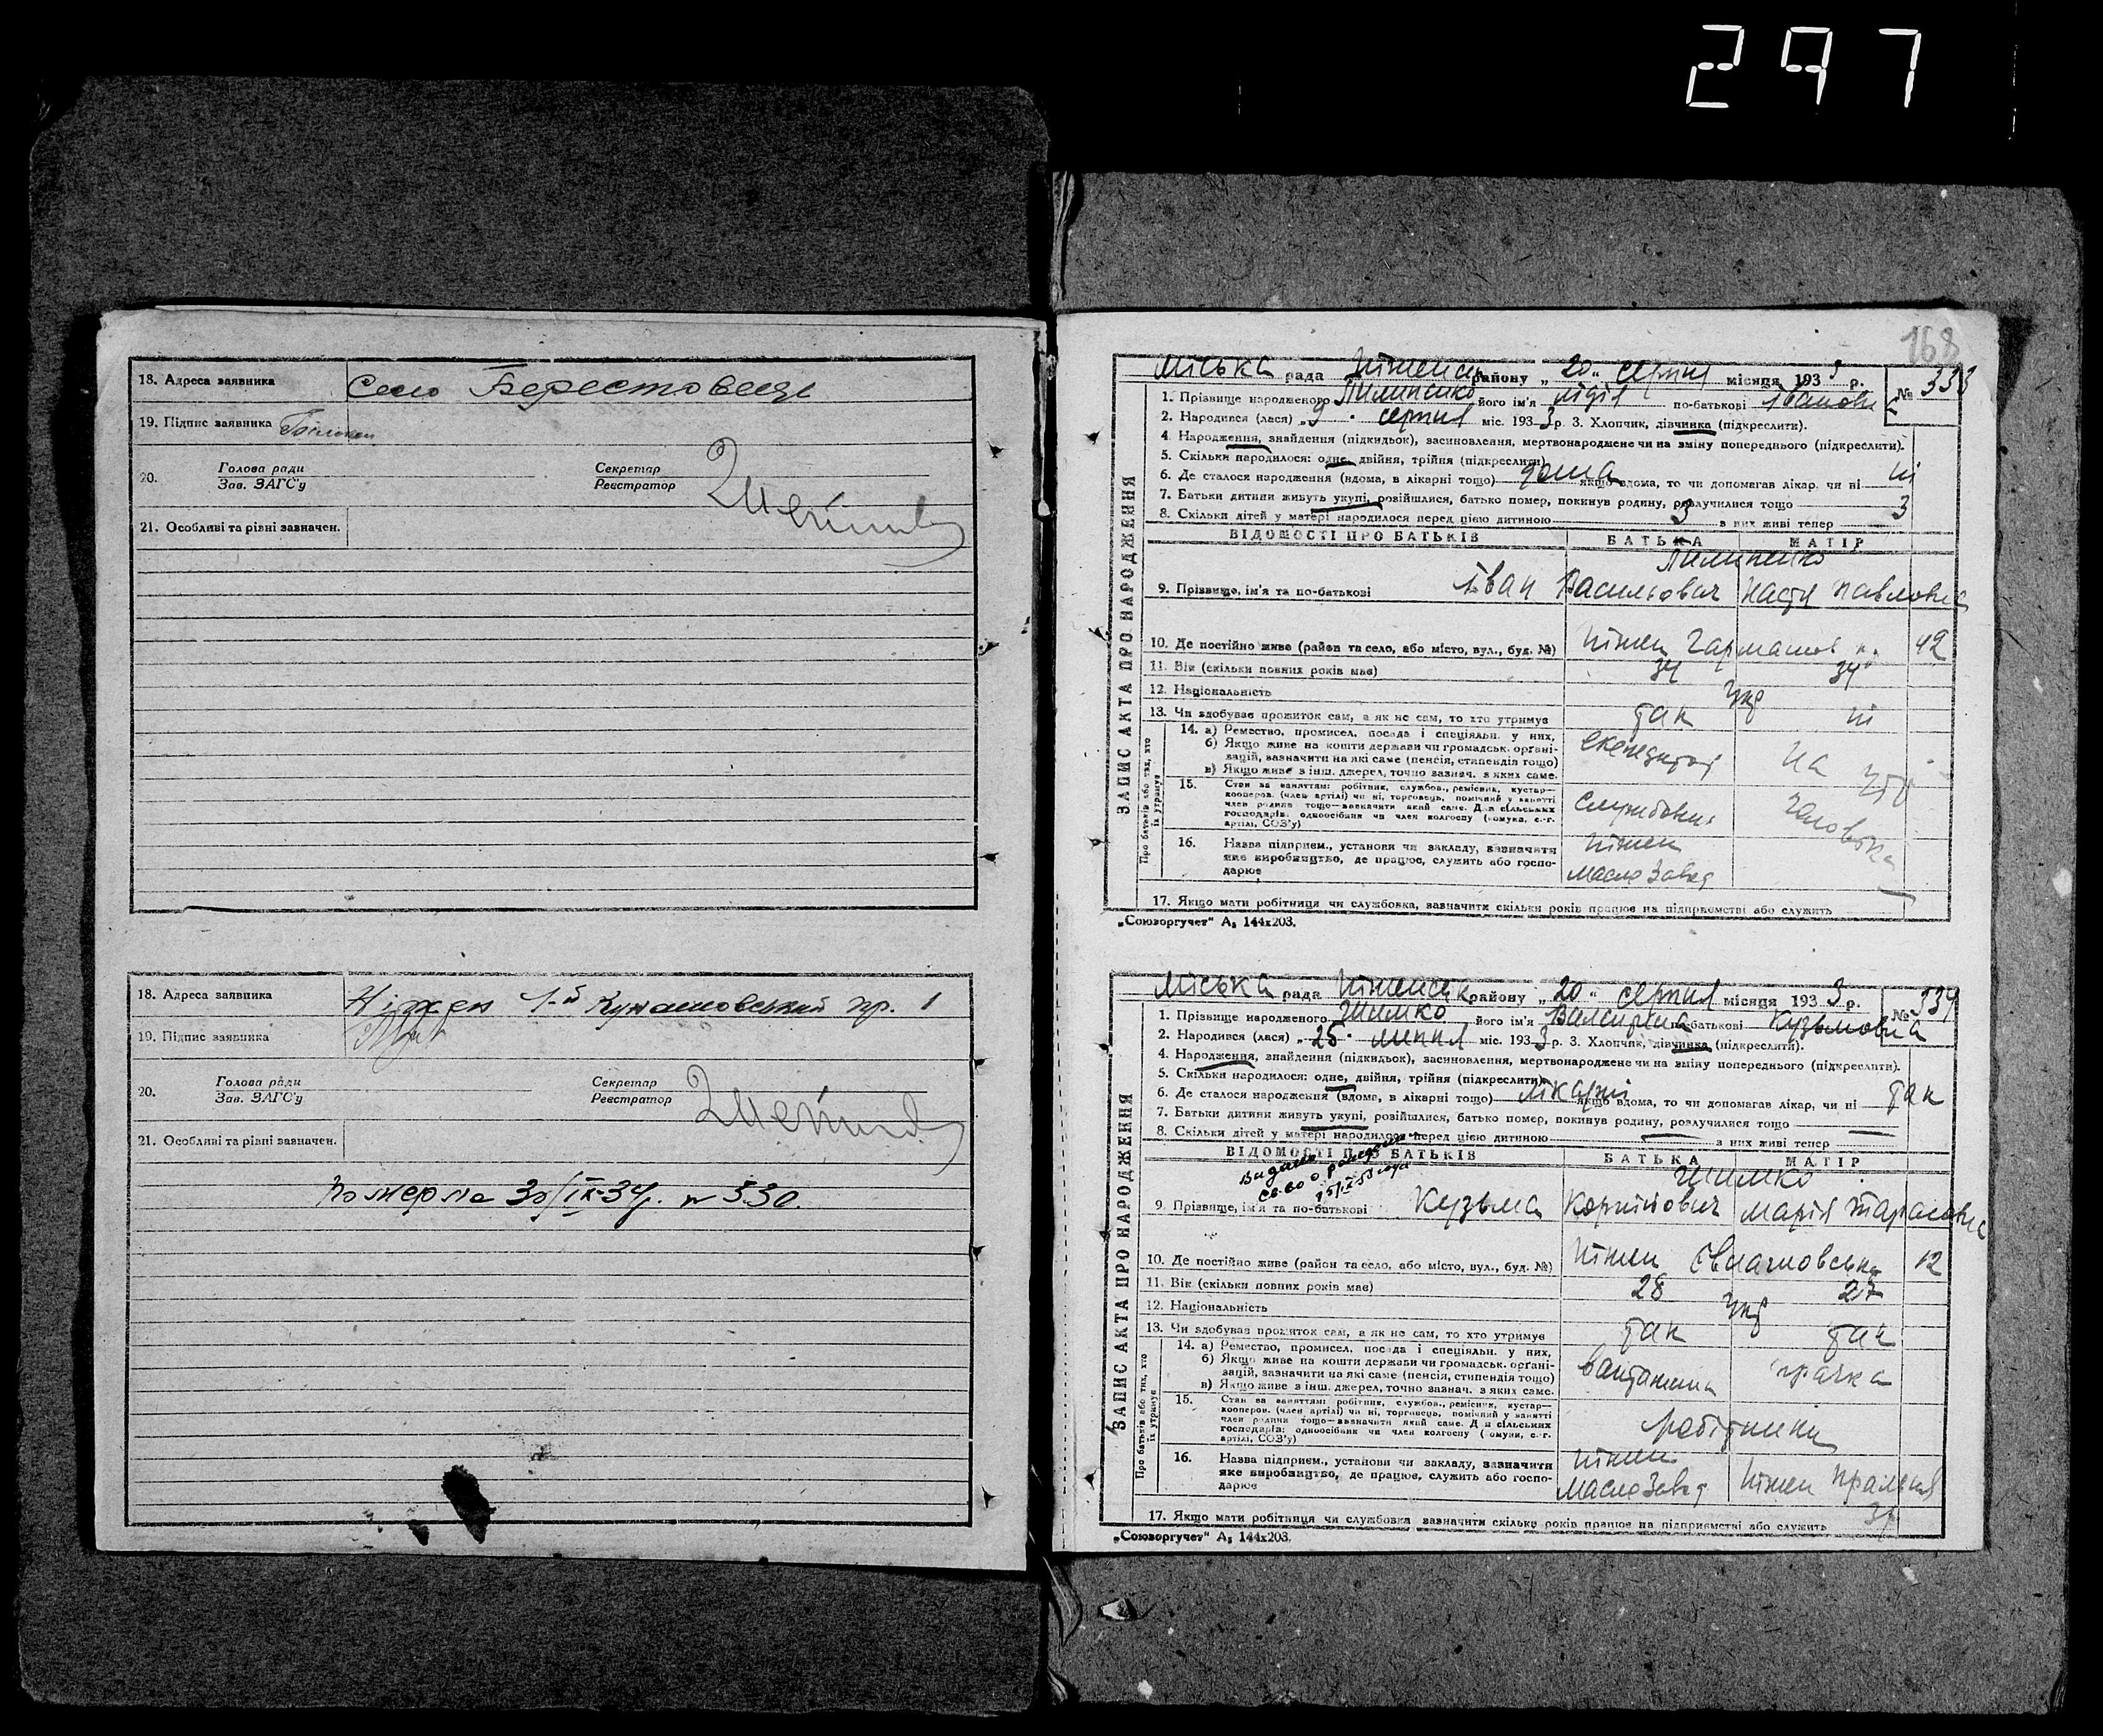 297
18. Адреса заявника Село Берестовець
19. Підпис заявника
20. Голова ради Секретар
Зав. ЗАГС'у Реєстратор
21. Особливі та різні зазначен.
18. Адреса заявника Ніжен 1-й пр. 1
19. Підпис заявника
20. Голова ради Секретар
Зав. ЗАГС'у Реєстратор
21. Особливі та різні зазначен.
Померла 30/IX-34р. № 530.
168
ЗАПИС АКТА ПРО НАРОДЖЕННЯ
Міська рада Ніженськ району „20" серпня місяця 1933 р. № 333
1. Прізвище народженого Пилипенко його ім'я Лідія по-батькові Івановн
2. Народився (лася) „9" серпня міс. 1933 р. 3. Хлопчик, дівчинка (підкреслити).
4. Народження, знайдення (підкидьок), засиновлення, мертвонароджене чи на зміну попереднього (підкреслити).
5. Скільки народилося: одне, двійня, трійня (підкреслити)
6. Де сталося народження (вдома, в лікарні тощо) дома якщо вдома, то чи допомагав лікар, чи ні ні
7. Батьки дитини живуть укупі, розійшлися, батько помер, покинув родину, розлучилися тощо
8. Скільки дітей у матері народилося перед цією дитиною 3 з них живі тепер 3
ВІДОМОСТІ ПРО БАТЬКІВ БАТЬКА МАТІР
Пилипенко
9. Прізвище, ім'я та по-батькові Іван Васильович Настя Павловна
10. Де постійно живе (район та село, або місто, вул., буд. №) Ніжен 42
11. Вік (скільки повних років має) 34 34
12. Національність Укр
13. Чи здобуває прожиток сам, а як не сам, то хто утримує так ні
Про батьків або тих, хто їх утримує
14. а) Ремество, промисел, посада і спеціяльн. у них,
б) Якщо живе на кошти держави чи громадськ. органі-
зацій, зазначити на які саме (пенсія, стипендія тощо)
в) Якщо живе з інш. джерел, точно зазнач. з яких саме.
експедитор на утр
15. Стан за заняттям: робітник, службов., ремісник, кустар—
кооперов. (член артілі) чи ні, торговець, помічний у занятті
член родини тощо—зазначити який саме. Для сільських
господарів: одноосібник чи член колгоспу (комуни, с.-г.
артілі, СОЗ'у)
службовец чоловіка
16. Назва підприєм., установи чи закладу, зазначити
яке виробництво, де працює, служить або госпо-
дарює
Ніжен
Маслозавод
17. Якщо мати робітниця чи службовка, зазначити скільки років працює на підприємстві або служить
„Союзоргучет" А₅ 144х203.
ЗАПИС АКТА ПРО НАРОДЖЕННЯ
Міська рада Ніженськ району „20" серпня місяця 1933 р. № 334
1. Прізвище народженого Шимко його ім'я Валентина по-батькові Кузьмовна
2. Народився (лася) „25" липня міс. 1933 р. 3. Хлопчик, дівчинка (підкреслити).
4. Народження, знайдення (підкидьок), засиновлення, мертвонароджене чи на зміну попереднього (підкреслити).
5. Скільки народилося: одне, двійня, трійня (підкреслити)
6. Де сталося народження (вдома, в лікарні тощо) лікарні якщо вдома, то чи допомагав лікар, чи ні так
7. Батьки дитини живуть укупі, розійшлися, батько помер, покинув родину, розлучилися тощо
8. Скільки дітей у матері народилося перед цією дитиною — з них живі тепер —
ВІДОМОСТІ ПРО БАТЬКІВ БАТЬКА МАТІР
Шимко
9. Прізвище, ім'я та по-батькові Кузьма Корнійович Марія Тарасовна
10. Де постійно живе (район та село, або місто, вул., буд. №) Ніжен 12
11. Вік (скільки повних років має) 28 27
12. Національність Укр
13. Чи здобуває прожиток сам, а як не сам, то хто утримує так так
Про батьків або тих, хто їх утримує
14. а) Ремество, промисел, посада і спеціяльн. у них,
б) Якщо живе на кошти держави чи громадськ. органі-
зацій, зазначити на які саме (пенсія, стипендія тощо)
в) Якщо живе з інш. джерел, точно зазнач. з яких саме.
прачка
15. Стан за заняттям: робітник, службов., ремісник, кустар—
кооперов. (член артілі) чи ні, торговець, помічний у занятті
член родини тощо—зазначити який саме. Для сільських
господарів: одноосібник чи член колгоспу (комуни, с.-г.
артілі, СОЗ'у)
робітники
16. Назва підприєм., установи чи закладу, зазначити
яке виробництво, де працює, служить або госпо-
дарює
Ніжен
Маслозавод Ніжен Пральня
17. Якщо мати робітниця чи службовка зазначити скільки років працює на підприємстві або служить
„Союзоргучет" А₅ 144х203.